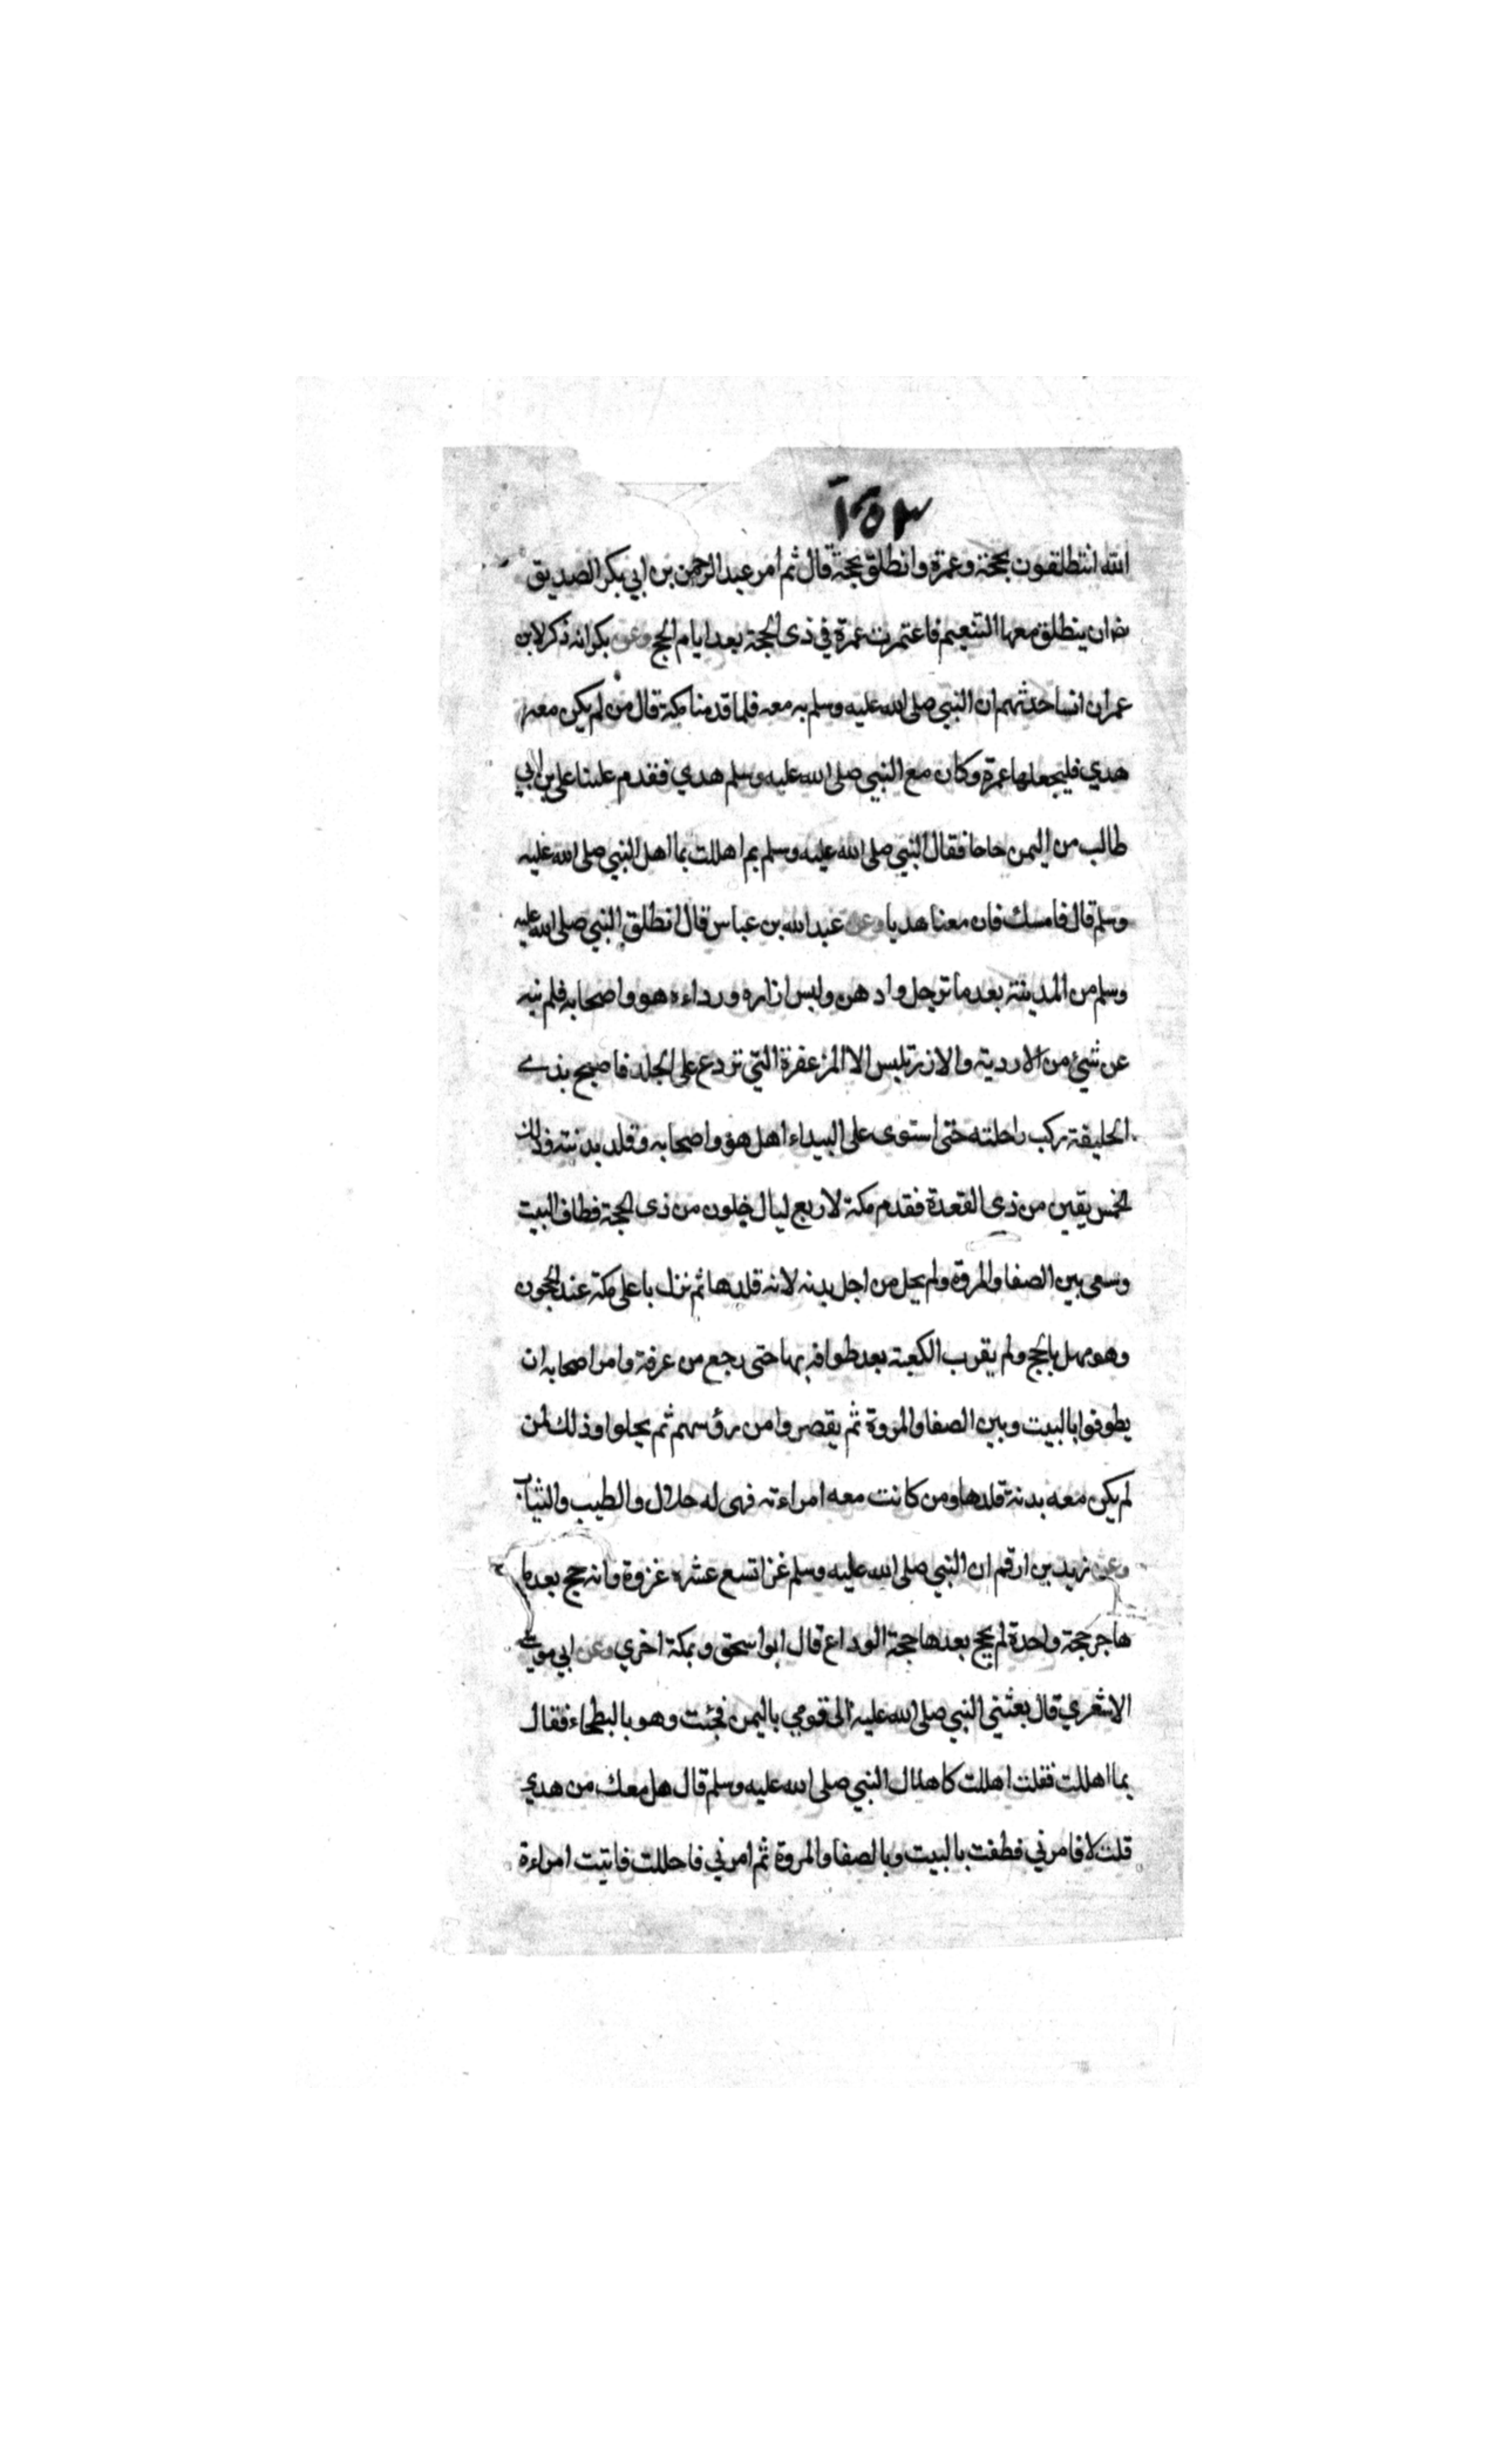 ١٥٣
الله انتطلقون بحجة وعمرة وانطلق بحجة قال ثم امر عبد الرحمن بن ابي بكر الصديق
ان ينطلق معها التنعيم فاعتمرت عمرة في ذى الحجة بعد ايام الحج وعن بكر انه ذكر لابن
عمران انسا حدثهم ان النبي صلى الله عليه وسلم به معه فلما قدمنا مكة قال من لم يكن معه
هدي فليجعلها عمرة وكان مع النبي صلى الله عليه وسلم هدي فقدم علينا علي بن ابي
طالب من اليمن حاجا فقال النبي صلى الله عليه وسلم بم اهللت بما اهل النبي صلى الله عليه
وسلم قال فامسك فان معنا هديا وعن عبد الله بن عباس قال انطلق النبي صلى الله عليه
وسلم من المدينة بعد ما ترجل وادهن ولبس ازاره ورداءه هو واصحابه فلم ينه
عن شيئ من الاردية والازر تلبس الا المزعفرة التي تردع على الجلد فاصبح بذي
الحليفة ركب راحلته حتى استوى على البيداء اهل هو واصحابه وقلد بدنته وذلك
لخمس بقين من ذى القعدة فقدم مكة لاربع ليال خلون من ذى الحجة فطاف البيت
وسعى بين الصفا والمروة ولم يحل من اجل بدنه لانه قلدها ثم نزل باعلى مكة عند الحجون
وهو مهل بالحج ولم يقرب الكعبة بعد طوافه بها حتى رجع من عرفة وامر اصحابه ان
يطوفوا بالبيت وبين الصفا والمروة ثم يقصروا من رؤسهم ثم يحلوا وذلك لمن
لم يكن معه بدنة قلدها ومن كانت معه امراءته فهى له حلال والطيب والثياب
وعن زيد بن ارقم ان النبي صلى الله عليه وسلم غزا تسع عشره غزوة وانه حج بعد ما
هاجر حجة واحدة لم يحج بعدها حجة الوداع قال ابو اسحق وبمكة اخري وعن ابي موسى
الاشعري قال بعثني النبي صلى الله عليه الى قومي باليمن فجئت وهو بالبطحاء فقال
بما اهللت فقلت اهللت كاهلال النبي صلى الله عليه وسلم قال هل معك من هدي
قلت لا فامرني فطفت بالبيت وبالصفا والمروة ثم امرني فاحللت فاتيت امراءة